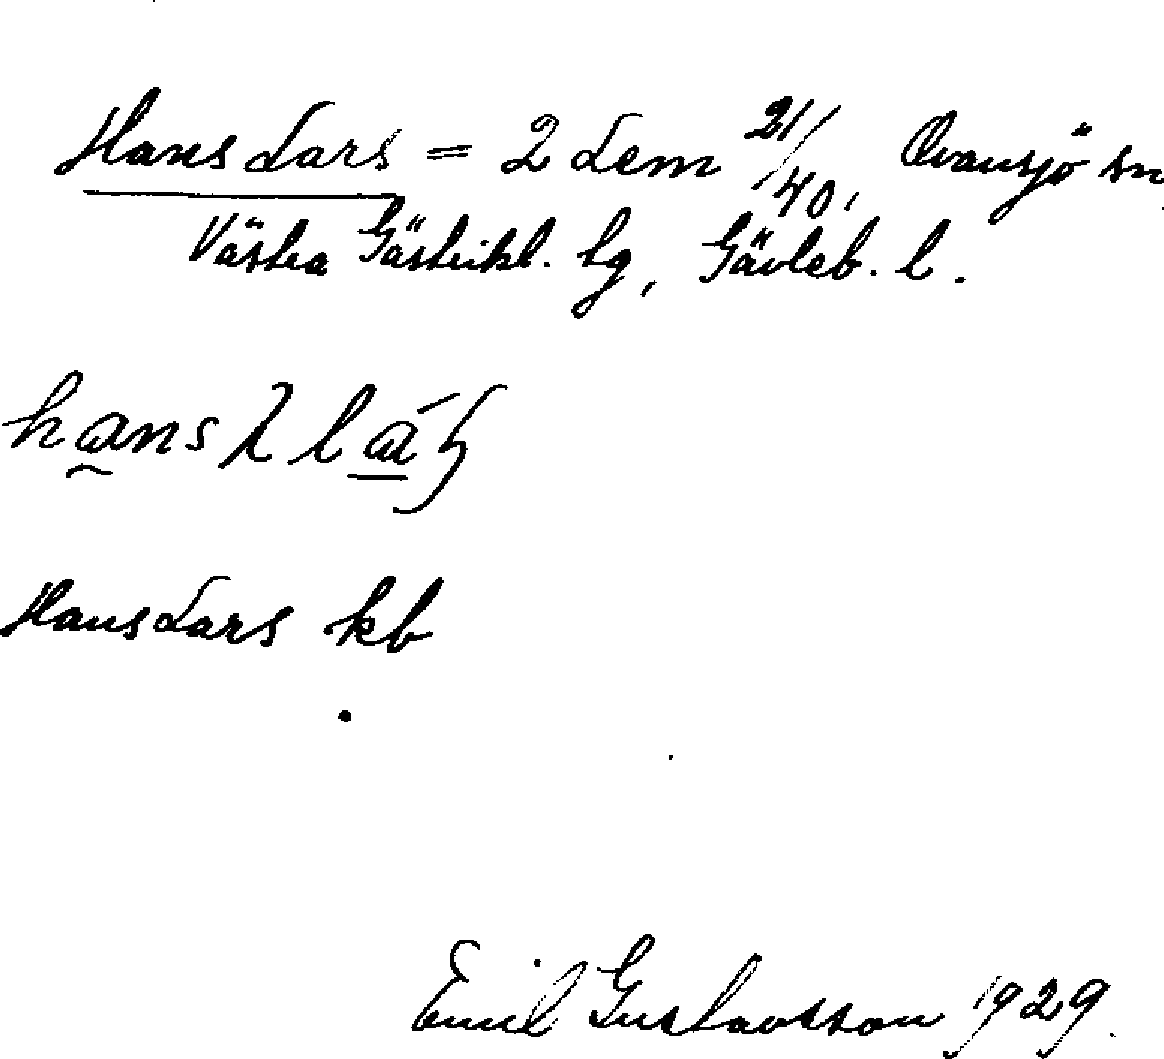 Hans Lars = 2 Lem 21/40, Ovansjö sn
Västra Gästrikl. tg, Gävleb. l.
hans lás
Hans Lars kb
Emil Gustavsson 1929.